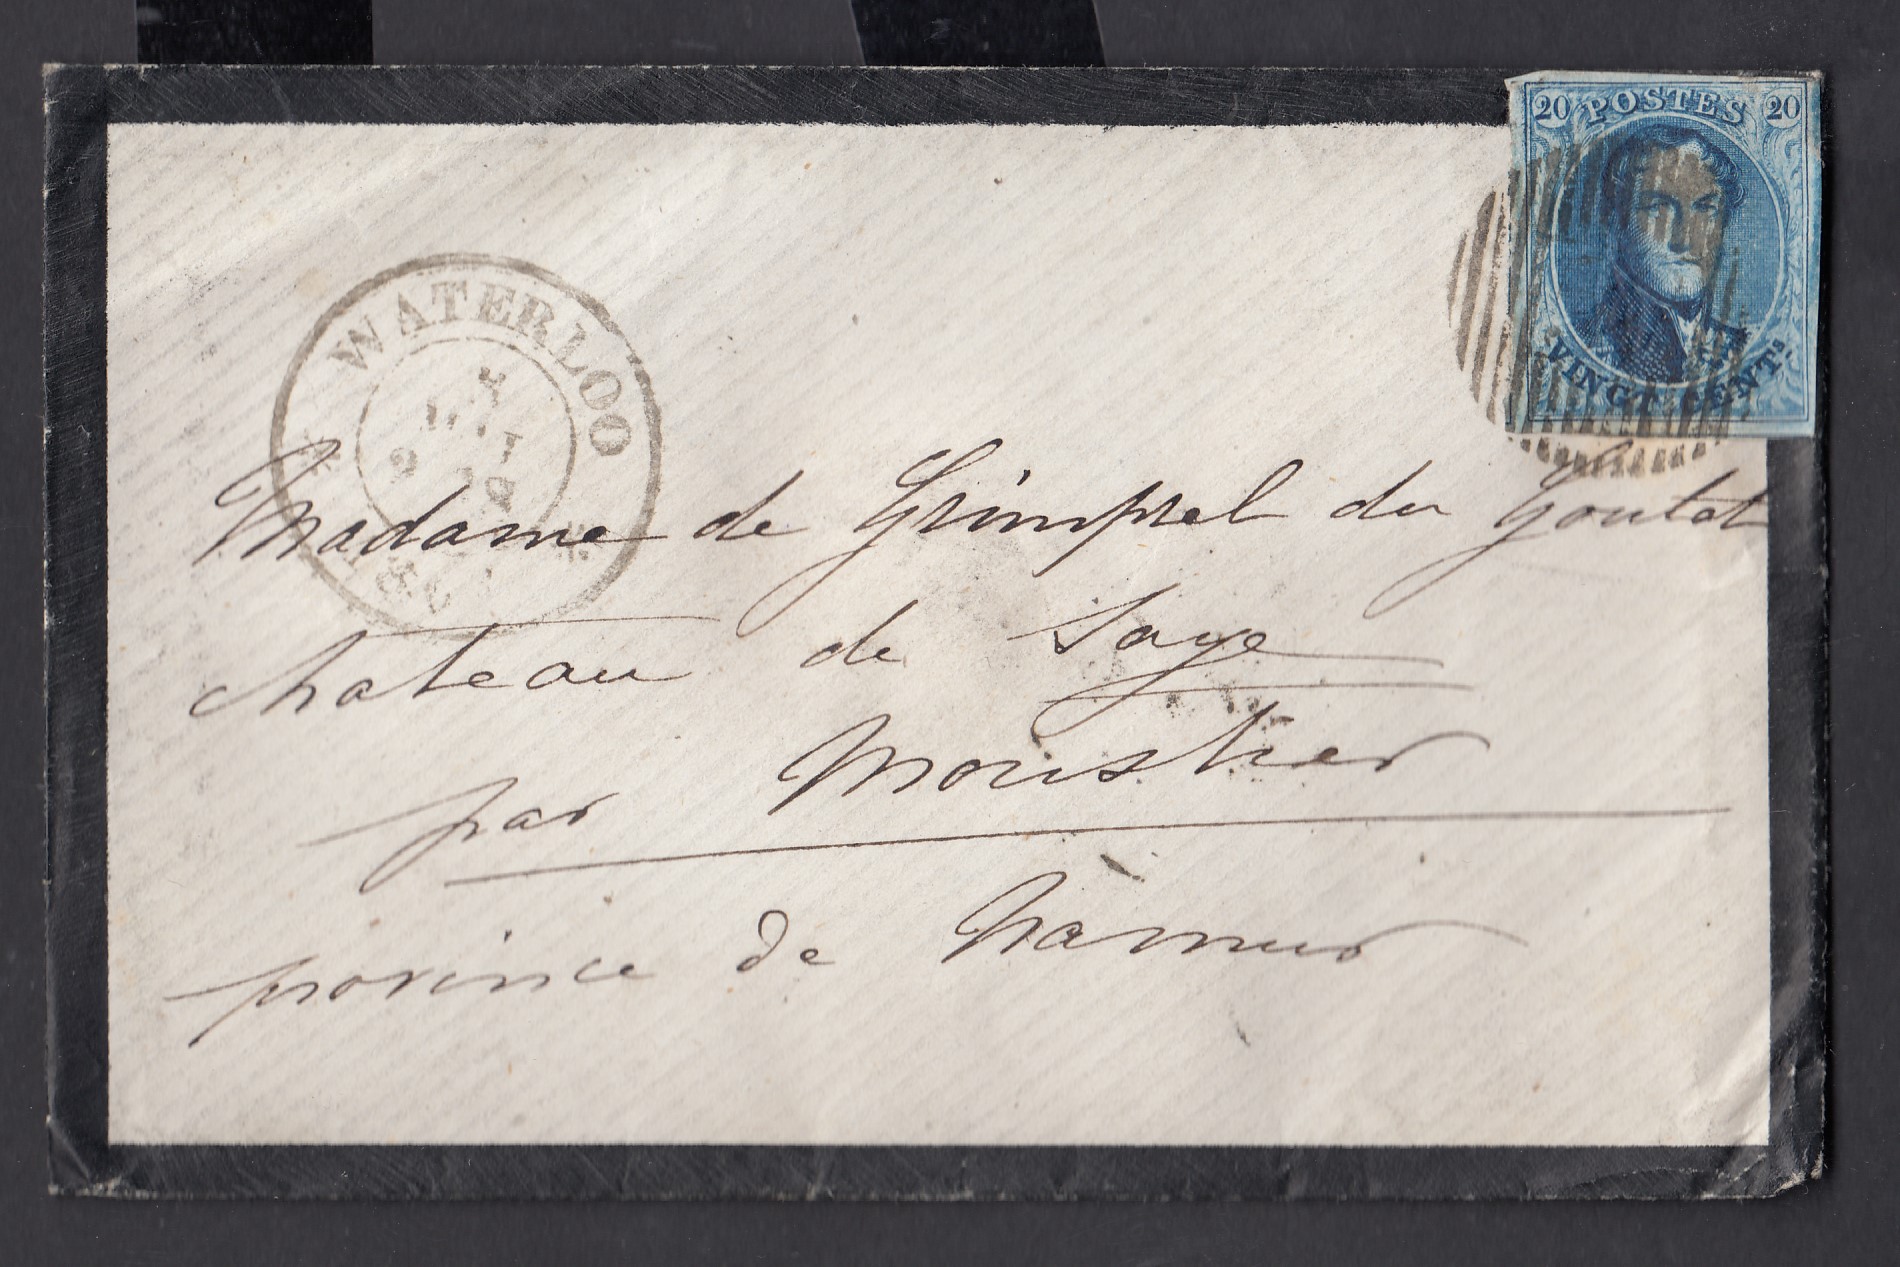 20 POSTES 20
VINGT CENTS.
WATERLOO
Madame de Grimprel du Goutet
chateau de Soye
par Moustier
province de Namur